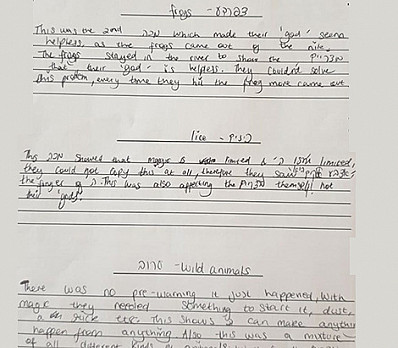 frogs - צפרדע
This was the 2nd מכה which made their 'god' seem
helpless, as the frogs came out of the nile.
The frogs stayed in the river to show the מצרים
that their 'god' is helpless. They couldn't solve
this problem, every time they hit the frog more came out.
lice - כינים
This מכה showed that magic is limited & ה' isn't limited,
they could not copy this at all, therefore they saw
the finger of ה'. This was also affecting the מצרים themself not
their 'gods'.
ערוב - wild animals
There was no pre-warning it just happened, with
magic they needed something to start it, dust,
a stick etc. This shows ה' can make anything
happen from anything. Also this was a mixture
of all different kinds of